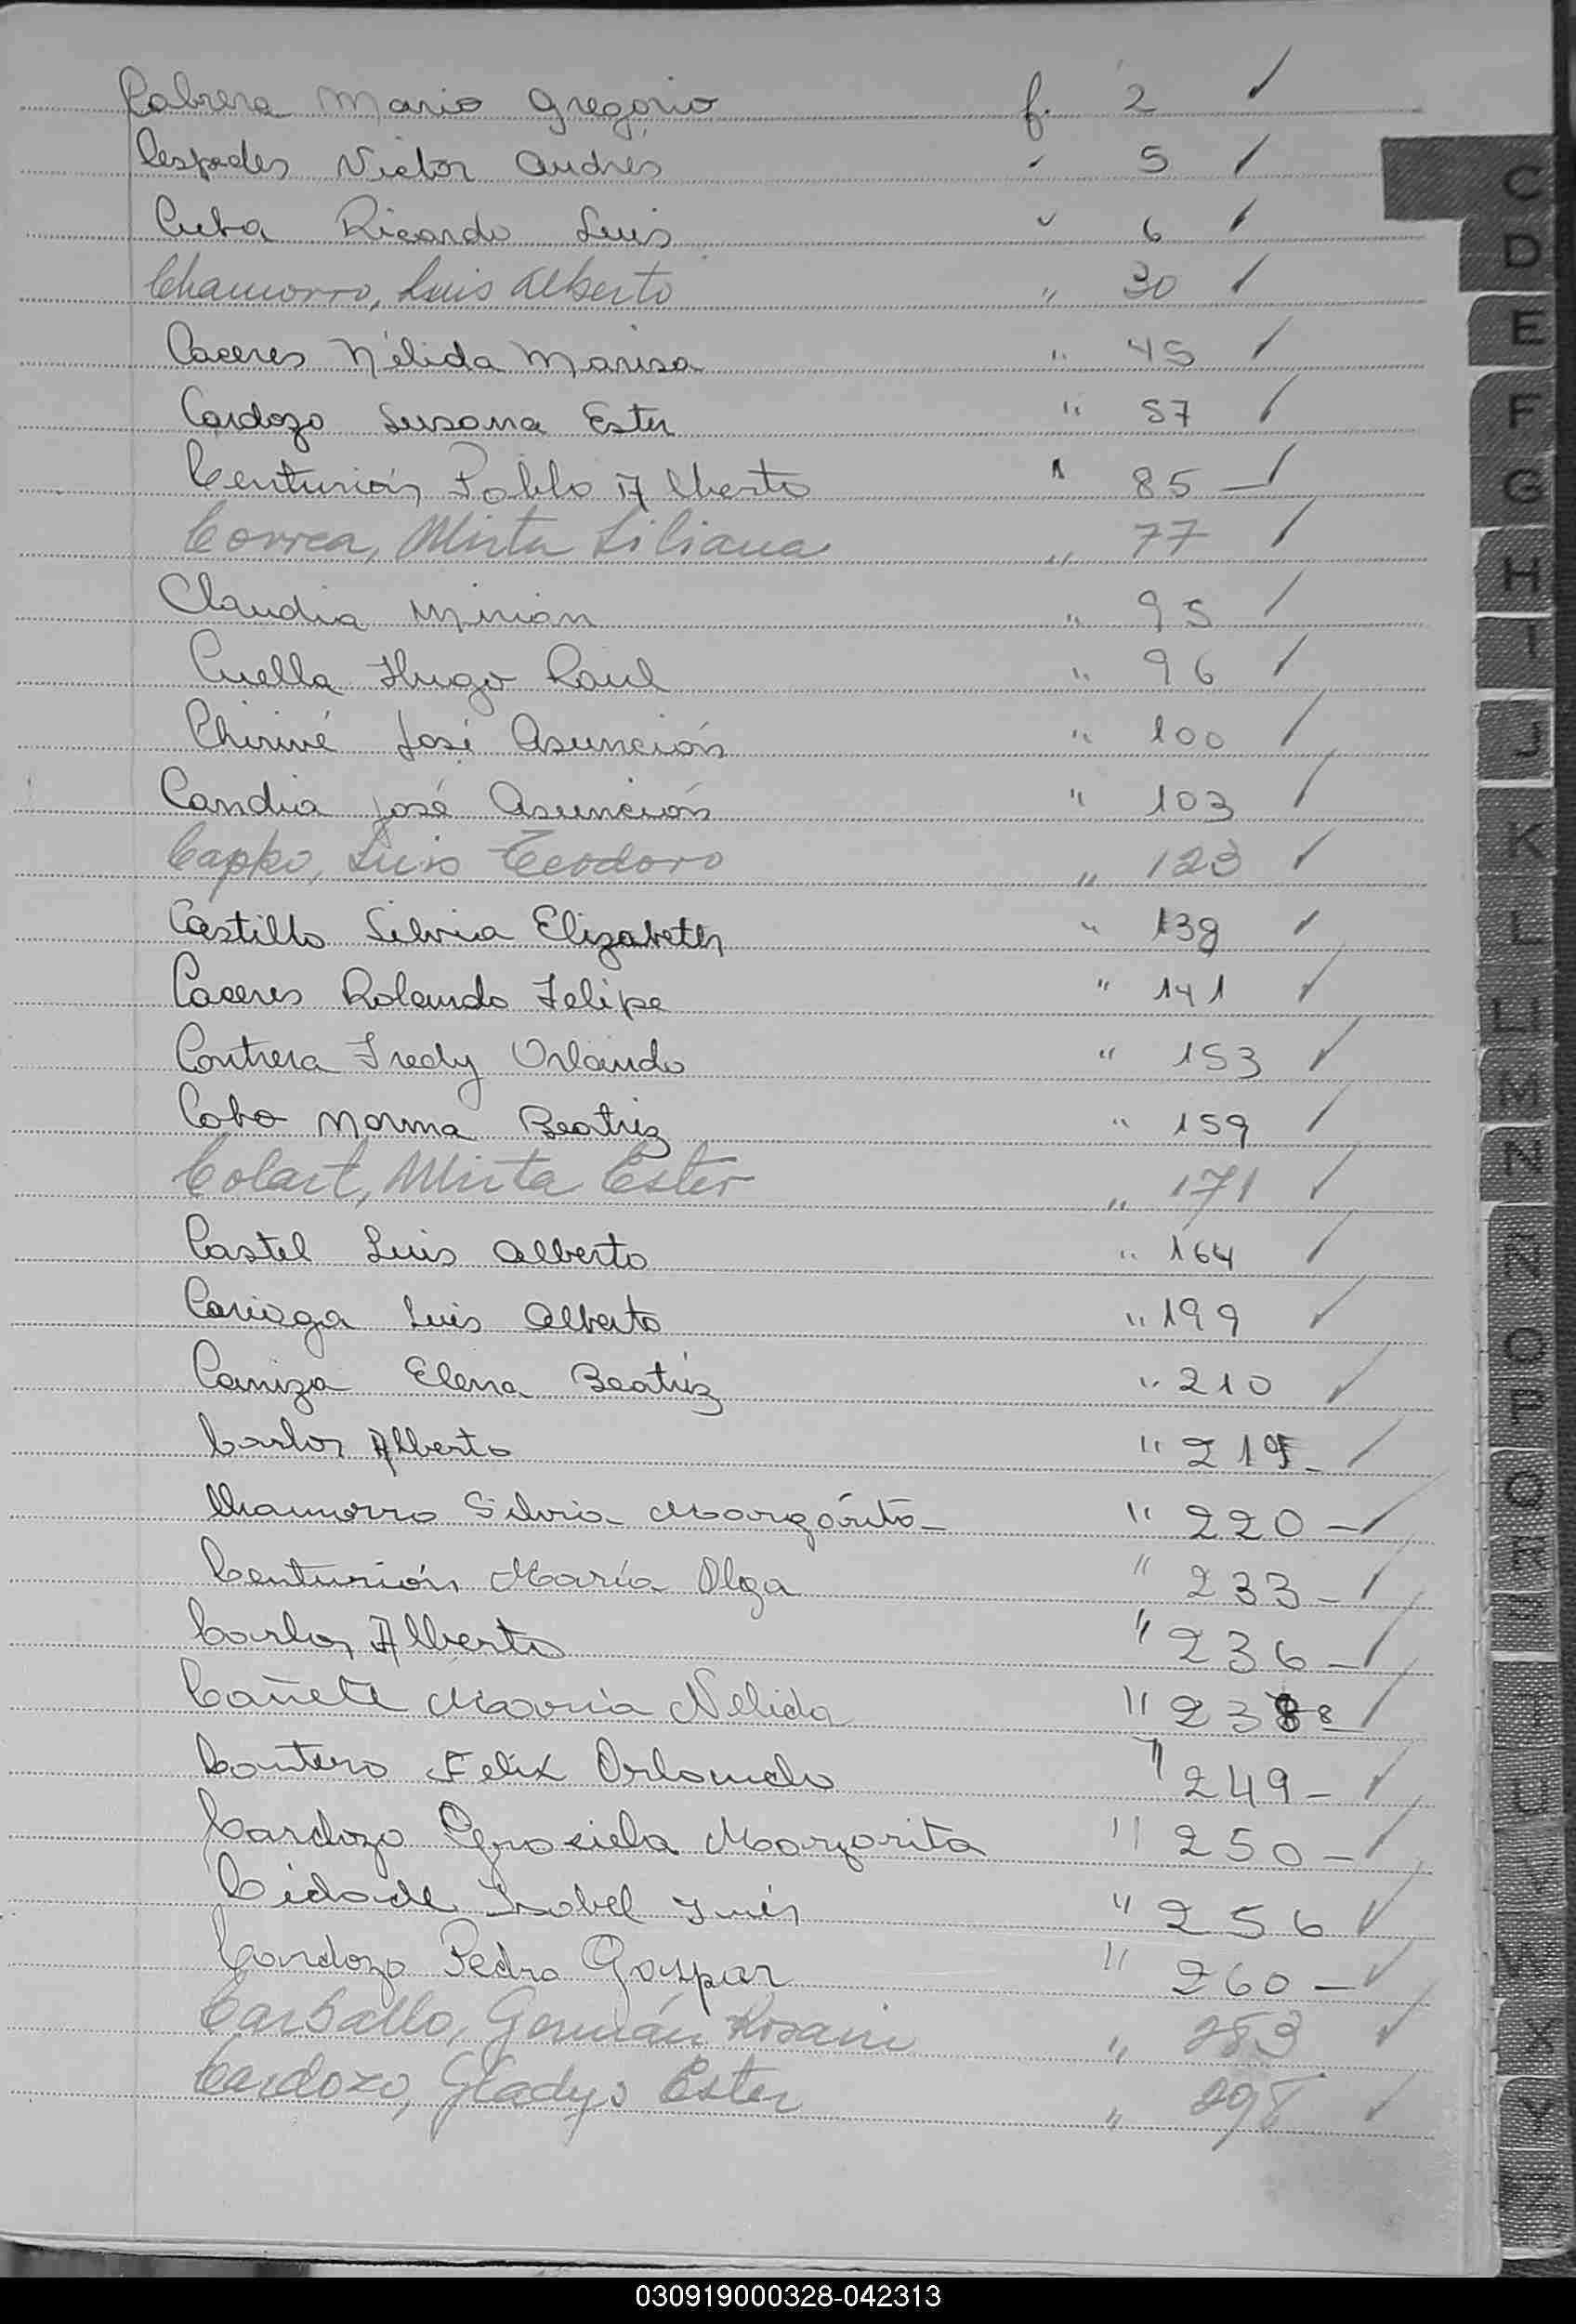 Cabrera Mario Gregorio f. 2 ✓
Cespedes Victor Andres " 5 ✓
Cuba Ricardo Luis " 6 ✓
Chamorro, Luis Alberto " 30 ✓
Caceres Nélida Marisa " 45 ✓
Cardozo Susana Ester " 57 ✓
Centurión Pablo Alberto " 85 - ✓
Correa, Mirta Liliana " 77 ✓
Claudia Mirian " 95 ✓
Cuella Hugo Raul " 96 ✓
Chirivé José Asunción " 100 ✓
Candia José Asunción " 103 ✓
Luis Teodoro " 123 ✓
Castillo Silvia Elizabeth " 138 ✓
Caceres Rolando Felipe " 141 ✓
Contrera Fredy Orlando " 153 ✓
Cobo Norma Beatriz " 159 ✓
Colart, Mirta Ester " 171 ✓
Castel Luis Alberto " 164 ✓
Cariaga Luis Alberto " 199 ✓
Caniza Elena Beatriz " 210 ✓
Carlos Alberto " ✓
Chamorro Silvia Margarita " 220 - ✓
Centurión María Olga " 233 - ✓
Carlos Alberto " 236 - ✓
Cañete María Nelida " 238 8 ✓
Contero Felix Orlando " 249 - ✓
Cardozo Graciela Margarita " 250 - ✓
Cidade Isabel Inés " 256 ✓
Cardozo Pedro Gaspar " 260 - ✓
Carballo, Germán " 283 ✓
Cardozo, Gladys Ester " ✓
C
D
E
F
G
H
I
J
K
L
LL
M
N
Ñ
O
P
Q
R
S
T
U
V
W
X
Y
Z
030919000328-042313